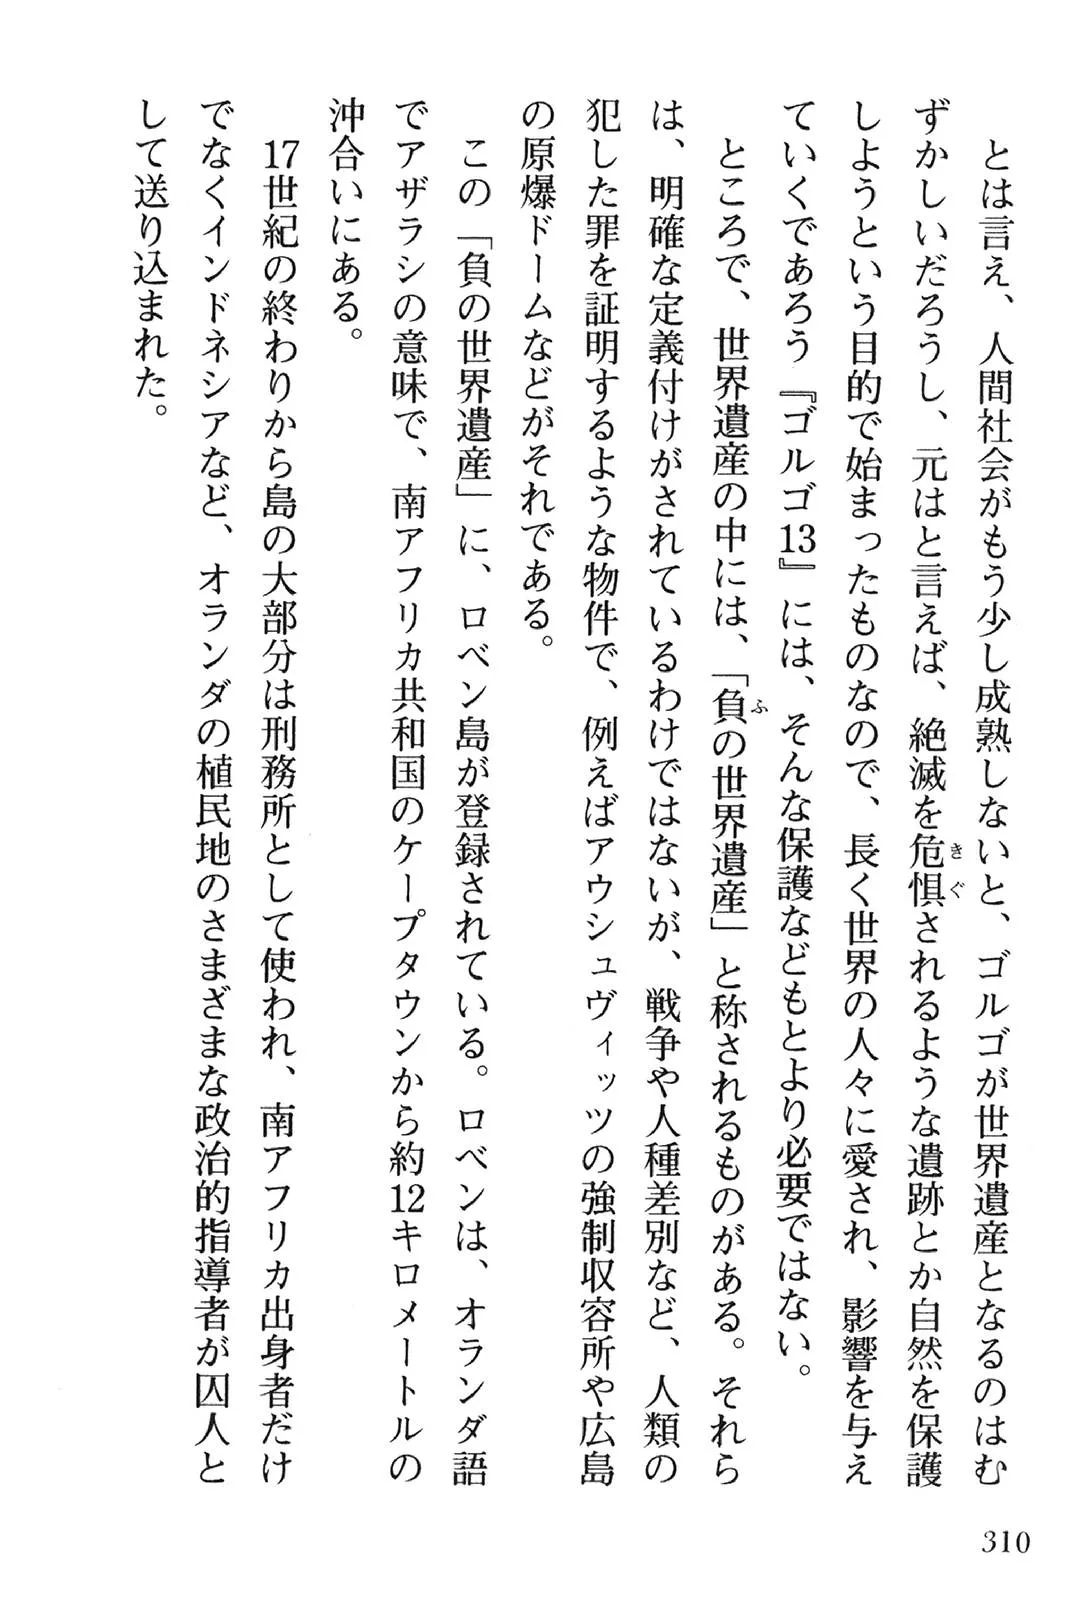 とは言え、人間社会がもう少し成熟しないと、ゴルゴが世界遺産となるのはむ
ずかしいだろうし、元はと言えば、絶滅を危惧されるような遺跡とか自然を保護
しようという目的で始まったものなので、長く世界の人々に愛され、影響を与え
ていくであろう『ゴルゴ13』には、そんな保護などもとより必要ではない。
ところで、世界遺産の中には、「負の世界遺産」と称されるものがある。それら
は、明確な定義付けがされているわけではないが、戦争や人種差別など、人類の
犯した罪を証明するような物件で、例えばアウシュヴィッツの強制収容所や広島
の原爆ドームなどがそれである。
この「負の世界遺産」に、ロベン島が登録されている。ロベンは、オランダ語
でアザラシの意味で、南アフリカ共和国のケープタウンから約12キロメートルの
沖合いにある。
17世紀の終わりから島の大部分は刑務所として使われ、南アフリカ出身者だけ
でなくインドネシアなど、オランダの植民地のさまざまな政治的指導者が囚人と
して送り込まれた。
310